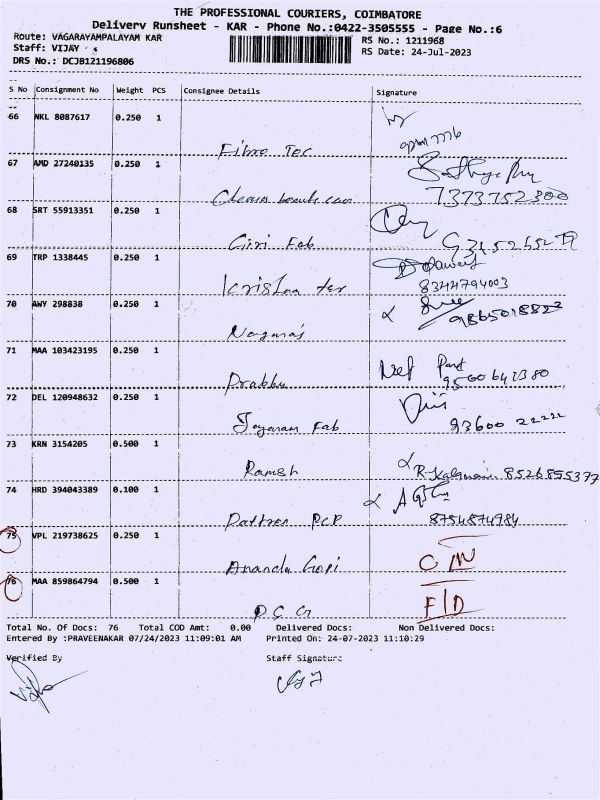 THE PROFESSIONAL COURIERS, COIMBATORE
Delivery Runsheet - KAR - Phone No.:0422-3505555 - Page No.:6
Route: VAGARAYAMPALAYAM KAR
RS No.: 1211968
Staff: VIJAY
RS Date: 24-Jul-2023
DRS No.: DCJB121196806
S No Consignment No Weight PCS Consignee Details Signature
66 NKL 8087617 0.250 1
Fibro Tec
67 AMD 27240135 0.250 1
7373752300
68 SRT 55913351 0.250 1
Giri Fab
69 TRP 1338445 0.250 1
Krishna tex 8344794003
70 AWY 298838 0.250 1
Nagaraj 9865018823
71 MAA 103423195 0.250 1
Prabhu
72 DEL 120948632 0.250 1
Jayaram Fab 93600 22222
73 KRN 3154205 0.500 1
Ramesh 8526855377
74 HRD 394043389 0.100 1
8754874984
75 VPL 219738625 0.250 1
Ananda Gopi
76 MAA 859864794 0.500 1
F/D
Total No. Of Docs: 76 Total COD Amt: 0.00 Delivered Docs: Non Delivered Docs:
Entered By :PRAVEENAKAR 07/24/2023 11:09:01 AM Printed On: 24-07-2023 11:10:29
Verified By Staff Signature